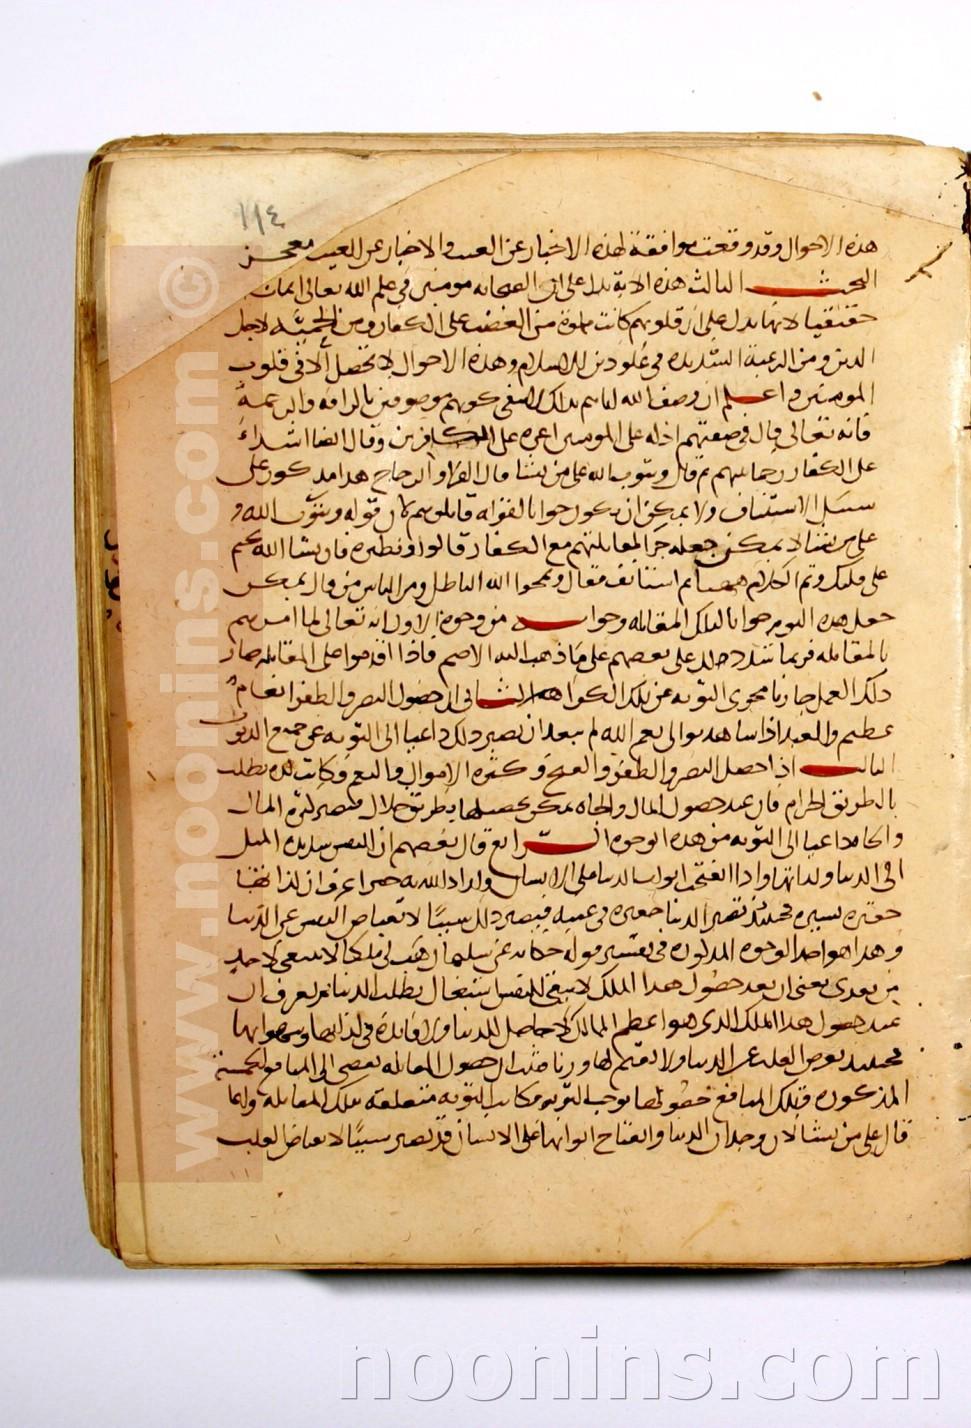 ١١٤
هذه الاحوال وقد وقعت موافقة لهذه الاخبار عن الغيب والاخبار عن الغيب معجز
البحث الثالث هذه الاية تدل على ان الصحابه مومنين في علم الله تعالى ايمانا
حقيقيا لانها تدل على ان قلوبهم كانت مملوة من الغضب على الكفار ومن الحميه لاجل
الدين ومن الرغبة الشديده في علو دين الاسلام وهذه الاحوال لا تحصل الا في قلوب
المومنين واعلم ان وصف الله لهم بذلك لا ينفى كونهم موصوفين بالرافه والرحمة
فانه تعالى قال في صفتهم اذله على المومنين اعزه على الكافرين وقال ايضا اشداء
على الكفار رحما بينهم ثم قال ويتوب الله على من يشا قال الفرا والزجاج هذا مذكور على
سبيل الاستئناف ولا يمكن ان يكون جوابا لقوله قاتلوهم لان قوله ويتوب الله
على من يشا لا يمكن جعله جزا لمقاتلتهم مع الكفار قالوا ونظيره فان يشا الله يختم
على قلبك وتم الكلام ههنا ثم استانف فقال ويمحوا الله الباطل ومن الناس من قال يمكن
جعل هذه التوبه جوابا لتلك المقاتله وجوابه من وجوه الاول انه تعالى لما امرهم
بالمقاتله فربما شق ذلك على بعضهم على ما ذهب اليه الاصم فاذا اقدموا على المقاتله صار
ذلك العمل جاريا مجرى التوبه عن تلك الكراهه الثاني ان حصول النصر والظفر انعام
عظيم والعبد اذا شاهد توالى نعم الله لم يبعد ان يصير ذلك داعيا الى التوبه عن جميع الذنوب
الثالث اذا حصل النصر والظفر والفتح وكثرة الاموال والنعم وكانت لذه تطلب
بالطريق الحرام فان عند حصول المال والجاه يمكن تحصيلها بطريق حلال فيصير كثرة المال
والجاه داعيا الى التوبه من هذه الوجوه الرابع قال بعضهم ان النفس شديده الميل
الى الدنيا ولذاتها واذا انفتحت ابواب الدنيا على الانسان واراد الله به خيرا عرف ان لذاتها
حقيره يسيره فحينئذ تصير الدنيا حقيره في عينه فيصير ذلك سببا لانقباض النفس عن الدنيا
وهذا هو احد الوجوه المذكوره في تفسير قوله حكايه عن سليمان هب لي ملكا لا ينبغي لاحد
من بعدي يعني ان بعد حصول هذا الملك لا يبقى للنفس اشتغال بطلب الدنيا ثم يعرف ان
عند حصول هذا الملك الذي هو اعظم الممالك لا حاصل للدنيا ولا فايدة في لذاتها وشهواتها
فحينئذ يعرض القلب عن الدنيا ولا يقيم لها وزنا فثبت ان حصول المقاتله يفضى الى المنافع الخمسة
المذكوره وتلك المنافع حصولها يوجب التوبه فكانت التوبه متعلقه بتلك المقاتله وانما
قال على من يشا لان وجدان الدنيا وانفتاح ابوابها على الانسان قد يصير سببا لانقباض القلب
www.noonins.com ©
noonins.com